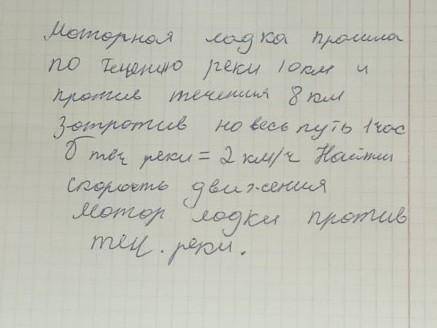 Моторная лодка прошла
по течению реки 10 км и
против течения 8 км
зотротив на весь путь 1 час
υ теч реки = 2 км/ч Найти
скорость движения
мотор лодки против
теч. реки.